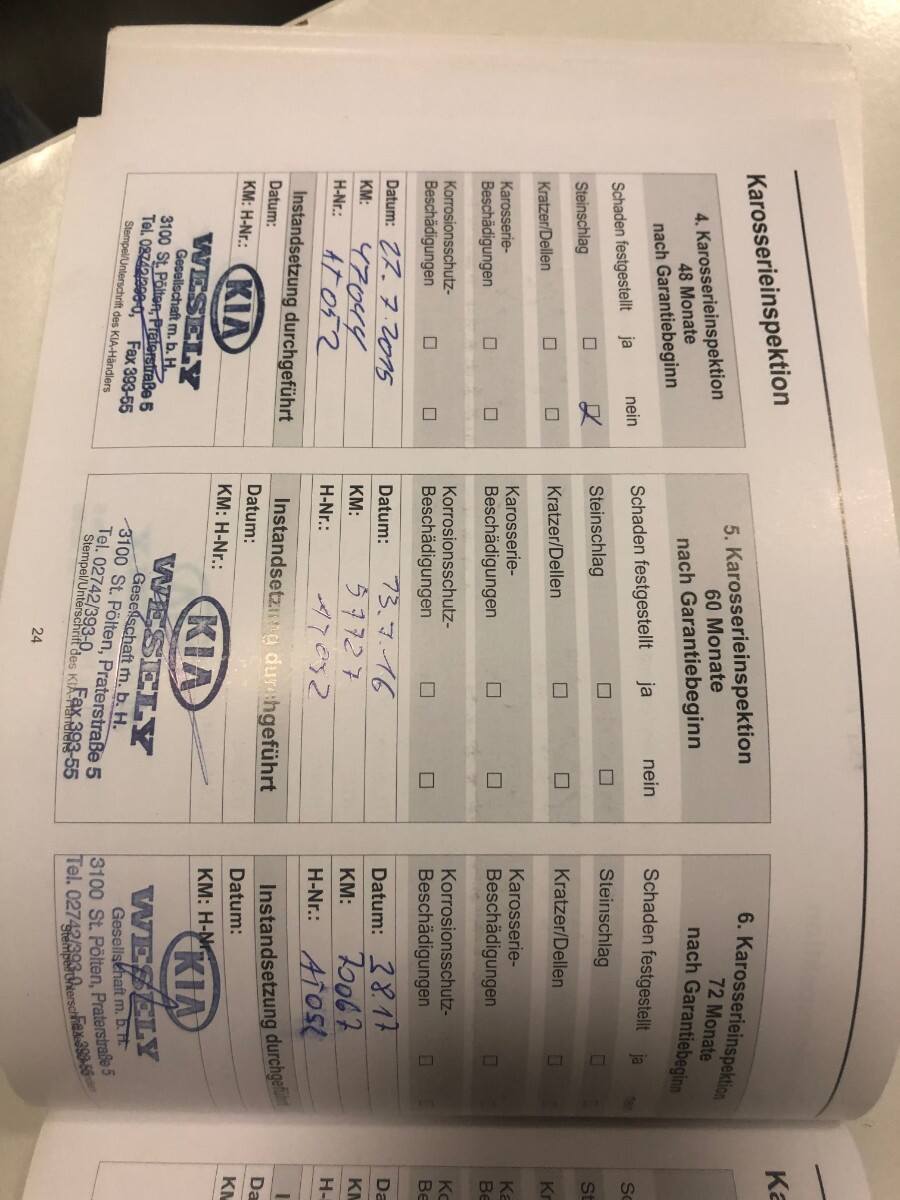 Karosserieinspektion
4. Karosserieinspektion
48 Monate
nach Garantiebeginn
Schaden festgestellt ja nein
Steinschlag
Kratzer/Dellen
Karosserie-
Beschädigungen
Korrosionsschutz-
Beschädigungen
Datum: 22.7.2015
KM: 47044
H-Nr.: AT052
Instandsetzung durchgeführt
Datum:
KM: H-Nr.:
KIA
WESELY
Gesellschaft m. b. H.
3100 St. Pölten, Praterstraße 5
Tel. 02742/393-0, Fax 393-55
Stempel/Unterschrift des KIA-Händlers
5. Karosserieinspektion
60 Monate
nach Garantiebeginn
Schaden festgestellt ja nein
Steinschlag
Kratzer/Dellen
Karosserie-
Beschädigungen
Korrosionsschutz-
Beschädigungen
Datum: 13.7.16
KM: 57727
H-Nr.: AT052
Instandsetzung durchgeführt
Datum:
KM: H-Nr.:
KIA
WESELY
Gesellschaft m. b. H.
3100 St. Pölten, Praterstraße 5
Tel. 02742/393-0, Fax 393-55
Stempel/Unterschrift des KIA-Händlers
6. Karosserieinspektion
72 Monate
nach Garantiebeginn
Schaden festgestellt ja
Steinschlag
Kratzer/Dellen
Karosserie-
Beschädigungen
Korrosionsschutz-
Beschädigungen
Datum: 3.8.17
KM: 70067
H-Nr.: AT052
Instandsetzung durchgeführt
Datum:
KM: H-Nr.:
KIA
WESELY
Gesellschaft m. b. H.
3100 St. Pölten, Praterstraße 5
Tel. 02742/393-0, Fax 393-55
24